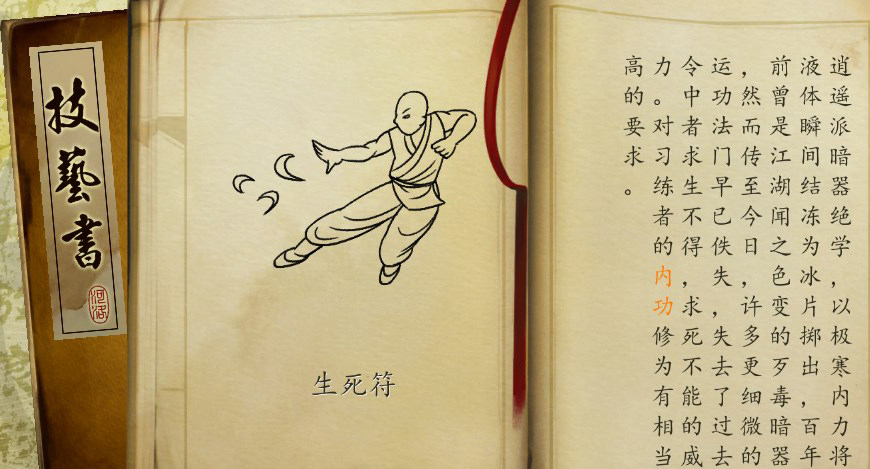 技藝書
河洛
生死符
逍遥派暗器绝学，以极寒内力将
液体瞬间结冻为冰片掷出，百年
前曾是江湖闻之色变的歹毒暗器
，然而传至今日，许多更细微的
运功法门早已佚失，失去了过去
令中者求生不得，求死不能的威
力。对习练者的内功修为有相当
高的要求。